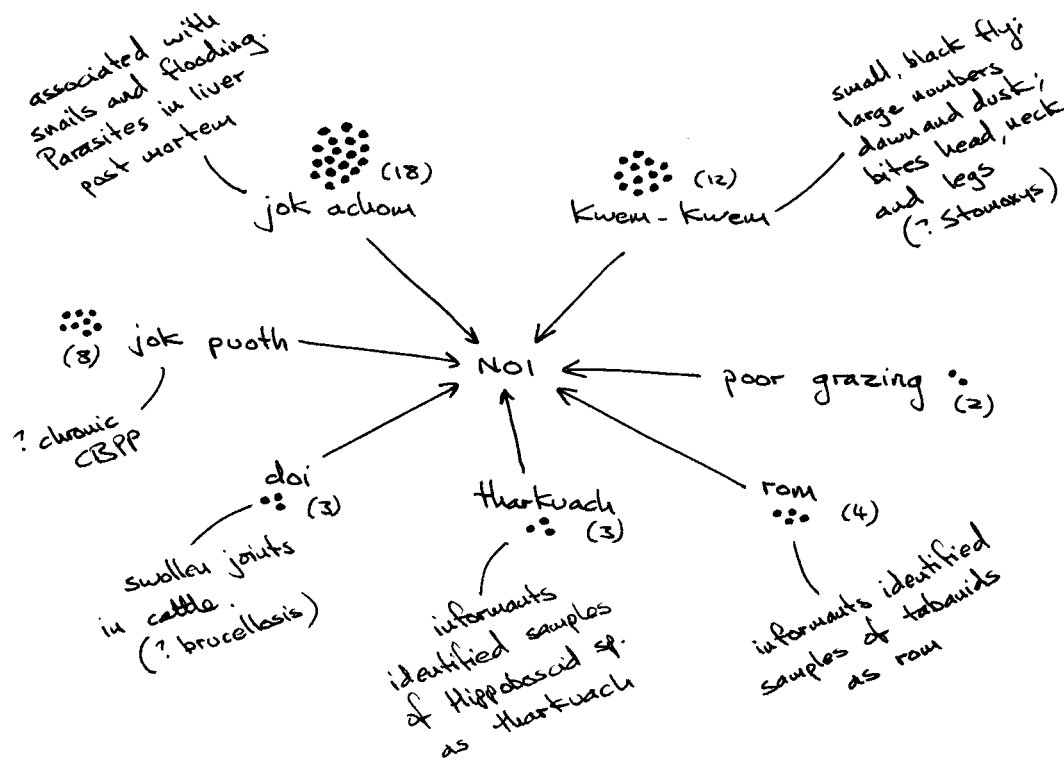 associated with
snails and flooding.
Parasites in liver
post mortem
(18)
jok achom
small, black fly;
large numbers
dawn and dusk;
bites head, neck
and legs
(? Stomoxys)
(12)
Kwem-Kwem
(8) jok puoth
? chronic
CBPP
NOI
poor grazing
(2)
doi
(3)
swollen joints
in cattle.
(? brucellosis)
tharkuach
(3)
informants
identified samples
of Hippoboscid sp.
as tharkuach
rom
(4)
informants identified
samples of tabanids
as rom